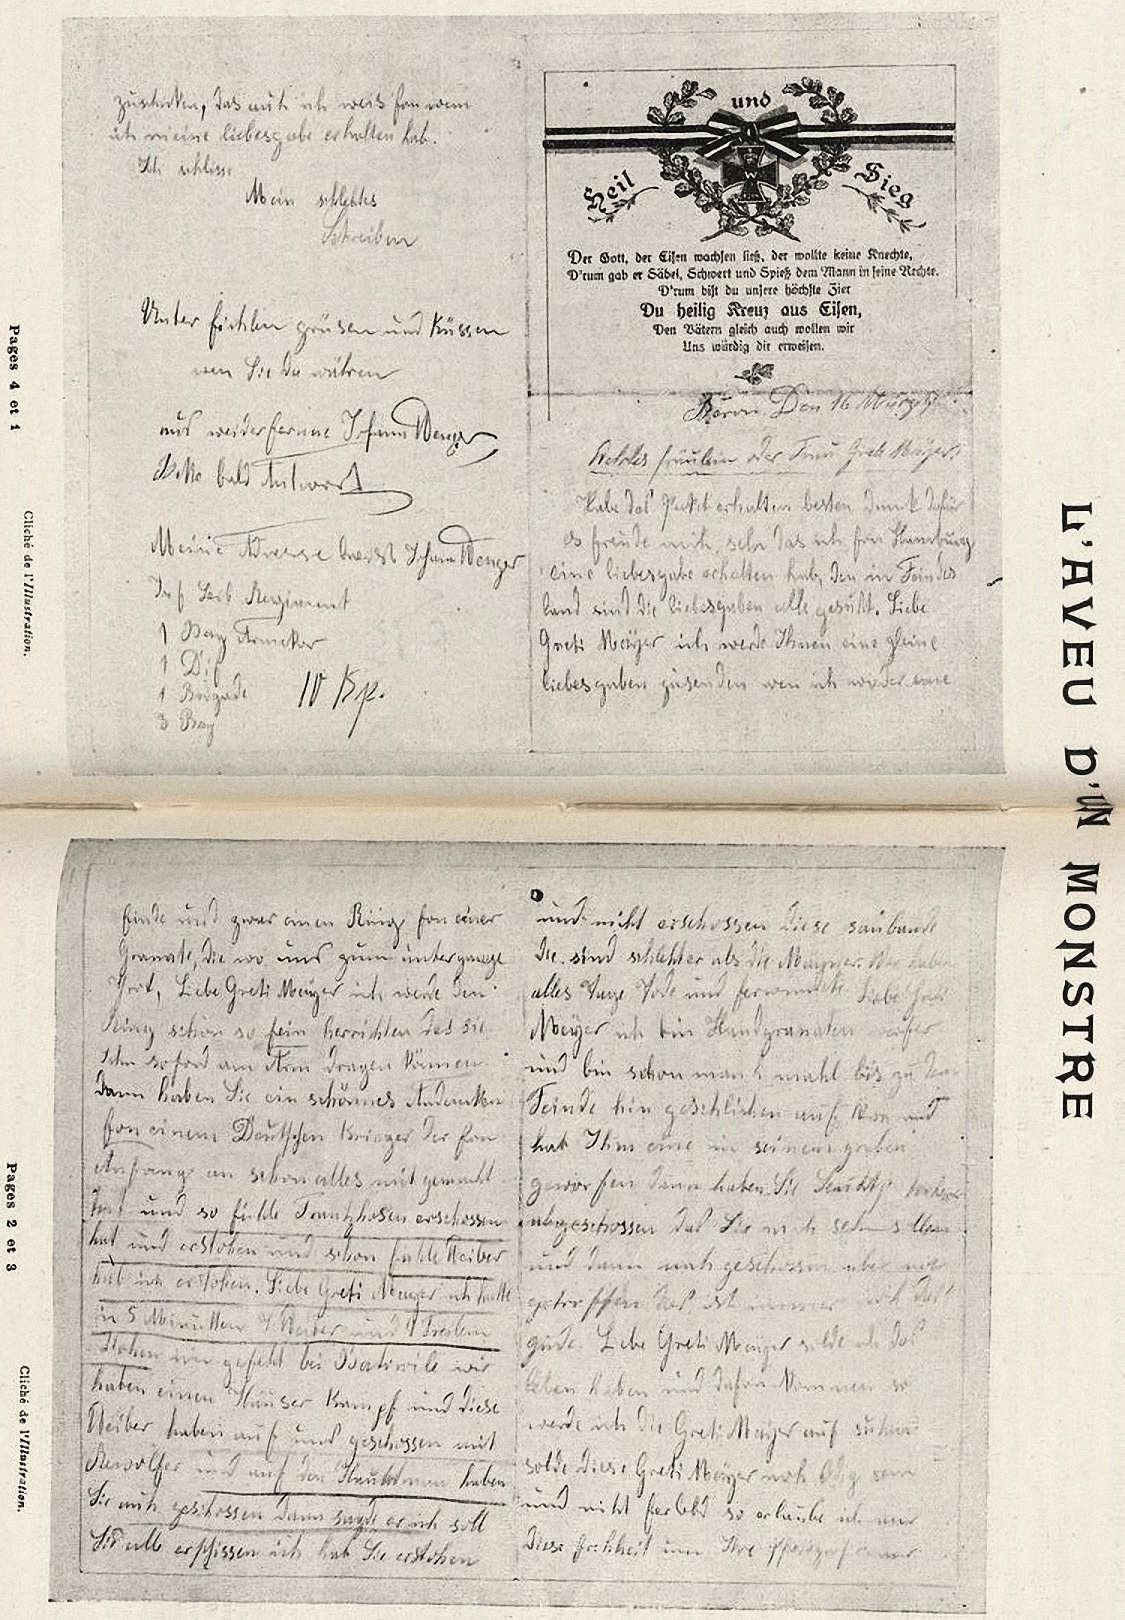 L'AVEU D'UN MONSTRE
Pages 4 et 1
Cliché de l'Illustration.
zuschiken, das auch ich weis fon wem
ich meine liebesgabe erhalten hab.
Ich schlisse
Mein schlechtes
Schreiben
Unter fichlen grüsen und Küssen
wen Sie Du wühren
aus weider ferne Johann Wenger
Bitte bald Antwort
Meine Adresse heisst Johann Wenger
Inf Leib Regiment
1 Bay Armekor
1 Dif
1 Brigade
3 Bay
10 Kp.
Heil und Sieg
W
Der Gott, der Eisen wachsen ließ, der wollte keine Knechte,
D'rum gab er Säbel, Schwert und Spieß dem Mann in seine Rechte.
D'rum bist du unsere höchste Zier
Du heilig Kreuz aus Eisen,
Den Vätern gleich auch wollen wir
Uns würdig dir erweisen.
Den 16 März
fräulein oder Frau Greti Mayer.
Habe das Packet erhalten besten Dank dafür
es freude mich sehr das ich fon Hamburg
eine liebesgabe erhalten hab, den in Feindes
land sind die liebesgaben alle gesucht. Liebe
Greti Mayer ich werde Ihnen eine kleine
liebesgaben zusenden wen ich wieder eine
Pages 2 et 3
Cliché de l'Illustration.
finde und zwar einen Ring fon einer
Granate, die wo uns zum untergange
Liebe Greti Mayer ich werde den
Ring schon so fein herrichten das sie
Ihn soford am Arm dragen können
dann haben Sie ein schönnes Andenken
fon einem Deutschen Krieger der fon
Anfang an schon alles mit gemacht
hat und so fühle Frantzhosen erschossen
hat und erstohen und schon fühle Weiber
hab ich erstohen. Liebe Greti Mayer ich hatte
in 5 Minutten 7 Weiber und 4 Freilein
stohen im gefeht bei Batowile wir
haben einen Häuser Kampf und diese
Weiber haben auf uns geschossen mit
Rewolfer und auf den Hauptman haben
Sie auch geschossen dann sagte er ich soll
Sie alle erschissen ich hab Sie erstohen
und nicht erschossen diese saubande
die sind schlehter als die Mäuner. Wir haben
alles Tage Tode und ferwunte Liebe Greti
Mayer ich bin Handgranaten werfer
und bin schon manch mahl bis zu dem
Feinde hin geschlichen auf und
hab Ihm eine in seinem graben
geworfen dann haben Sie
abgeschossen das Sie mich sehn sollen
und dann nach geschossen aber nie
getroffen das ist immer noch das
gude. Liebe Greti Mayer solde ich das
leben haben und dafon kommen so
werde ich die Greti Mayer auf suchen
solde diese Greti Mayer noch ledig sein
und nicht ferlobd so erlaube ich mir
diese frechheit um Ihre